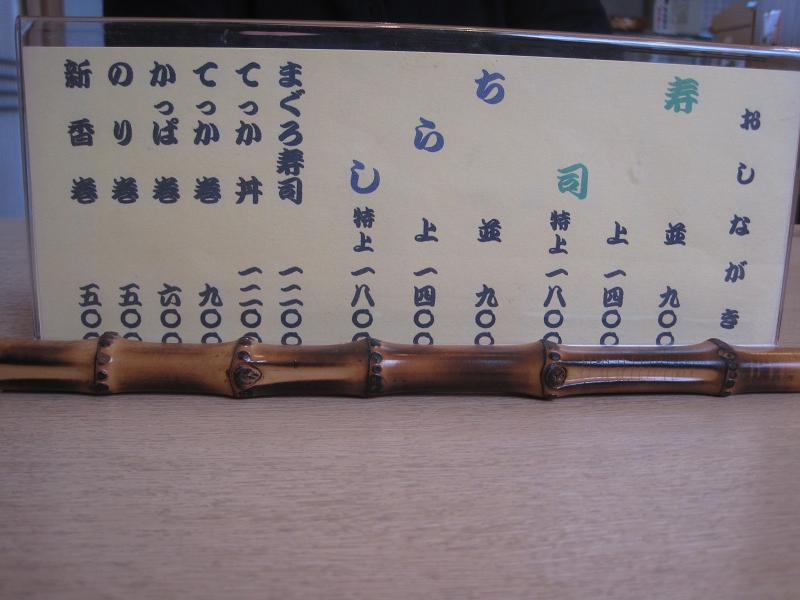 おしながき
寿司
並 九〇〇
上 一四〇〇
特上 一八〇〇
ちらし
並 九〇〇
上 一四〇〇
特上 一八〇〇
まぐろ寿司 一二〇〇
てっか丼 一二〇〇
てっか巻 九〇〇
かっぱ巻 六〇〇
のり巻 五〇〇
新香巻 五〇〇